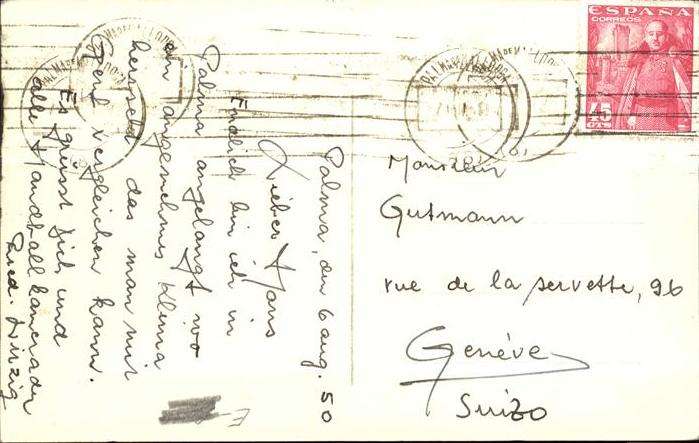 ESPAÑA
CORREOS
45
CTS
Palma, den 6 aug. 50
Lieber Hans
Endlich bin ich in
Palma angelangt wo
ein angenehmes Klima
herrscht das man mit
Genf vergleichen kann.
Es grüsst Dich und
alle Handballkameraden
Monsieur
Gutmann
rue de la servette, 96
Genève
Suizo